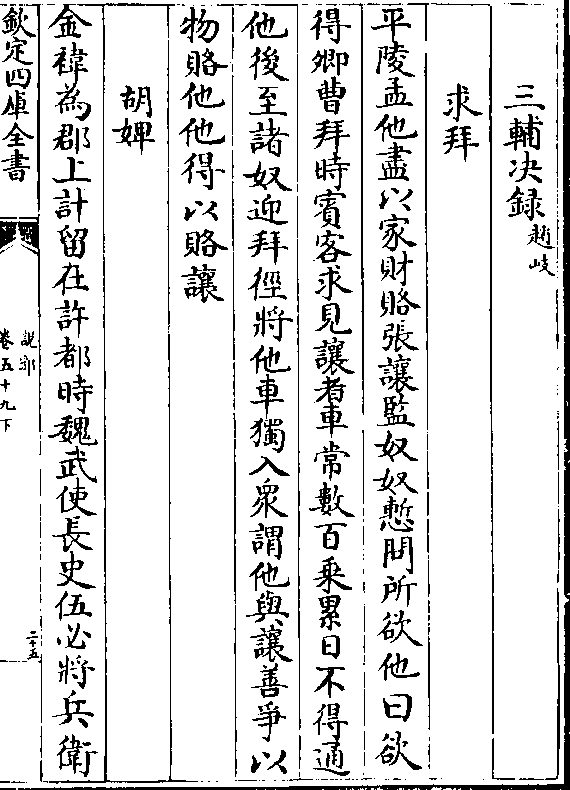 三輔决録趙岐
求拜
平陵孟他盡以家財賂張讓監奴奴慙問所欲他曰欲
得卿曹拜時賓客求見讓者車常數百乘累日不得通
他後至諸奴迎拜徑將他車獨入衆謂他與讓善爭以
物賂他他得以賂讓
胡婢
金褘為郡上計留在許都時魏武使長史伍必將兵衛
欽定四庫全書
說郛
卷五十九下
二十五